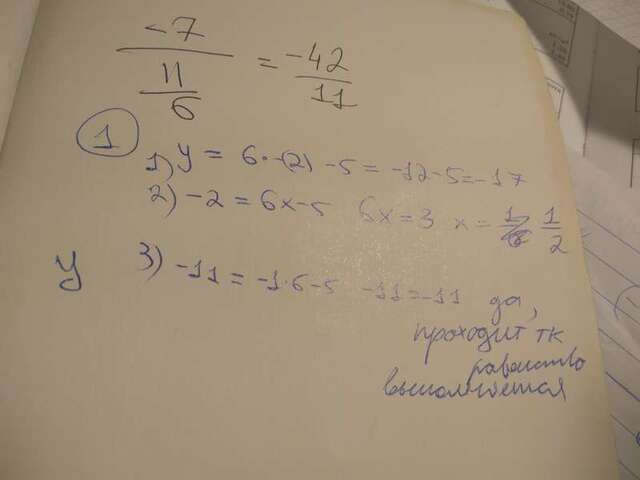 -7 / (11/6) = -42/11
1
1) y = 6·-(2) -5 = -12-5=-17
2) -2 = 6x-5 6x=3 x= 1/2
3) -11 = -1·6-5 -11=-11 да,
y
проходит тк
равенство
выполняется